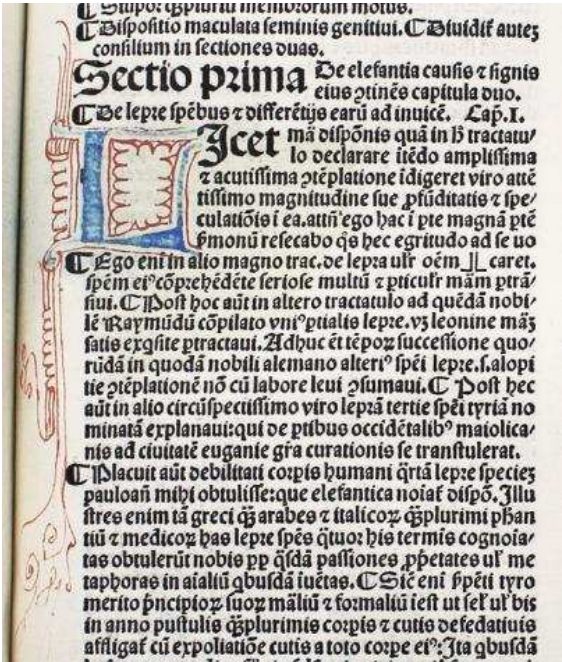 ¶ Stupor qꝫpluriū membrorum motus.
¶ Dispositio maculata seminis genitiui. ¶ Diuidit̃ auteꝫ
consilium in sectiones duas.
Sectio prima De elefantia causis ⁊ signis
eius ꝯtinēs capitula duo.
¶ De lepre spēbus ⁊ differētijs earū ad inuicē. Cap̃.I.
Licet mā dispōnis quā in ħ tractatu/
lo declarare itēdo amplissima
⁊ acutissima ꝯtēplatione īdigeret viro attē
tissimo magnitudine sue ꝓfūditatis ⁊ spe/
culatiōis i ea. attñ ego hac i pte magnā ptē
ṗmonū resecabo qͦs hec egritudo ad se uo
¶ Ego eni in alio magno trac. de lepra ulr̃ oēm caret.
spēm eiꝰ cōprehēdēte seriose multū ⁊ ꝑticulr̃ mām ꝑtrā/
siui. ¶ Post hoc aūt in altero tractatulo ad quēdā nobi/
lē Raymūdū cōpilato vniꝰ ptialis lepre. vꝫ leonine māꝫ
satis exqsite ꝑtractaui. Adhuc ēt tēpoꝝ successione quo/
rūdā in quodā nobili alemano alteriꝰ spēi lepre. s. alopi
tie ꝯtēplationē nō cū labore leui ꝯsumaui. ¶ Post hec
aūt in alio circūspectissimo viro leprā tertie spēi tyriā no
minatā explanaui: qui de ꝑtibus occidētalibꝰ maiolica/
nis ad ciuitatē euganie gr̃a curationis se transtulerat.
¶ Placuit aūt debilitati corpis humani qͥrtā lepre specieꝫ
pauloañ mihi obtulisse: que elefantica noīat̃ dispō. Illu
stres enim tā greci qꝫ arabes ⁊ italicoꝝ qꝫplurimi phan
tiū ⁊ medicoꝝ has lepre spēs qͣtuor his termis cognoia/
tas obtulerūt nobis ꝓp qͣsdā passiones ꝓpetates ul̃ me
taphoras in aīaliū qbusdā iuētas. ¶ Sic eni ṗpēti tyro
merito ṗncipioꝝ suoꝝ māliū ⁊ formaliū iest ut sel̃ ul̃ bis
in anno pustulis qꝫplurimis corpis ⁊ cutis defedatiuis
affligat̃ cū expoliatiōe cutis a toto corpe eiꝰ: Ita qbusdā